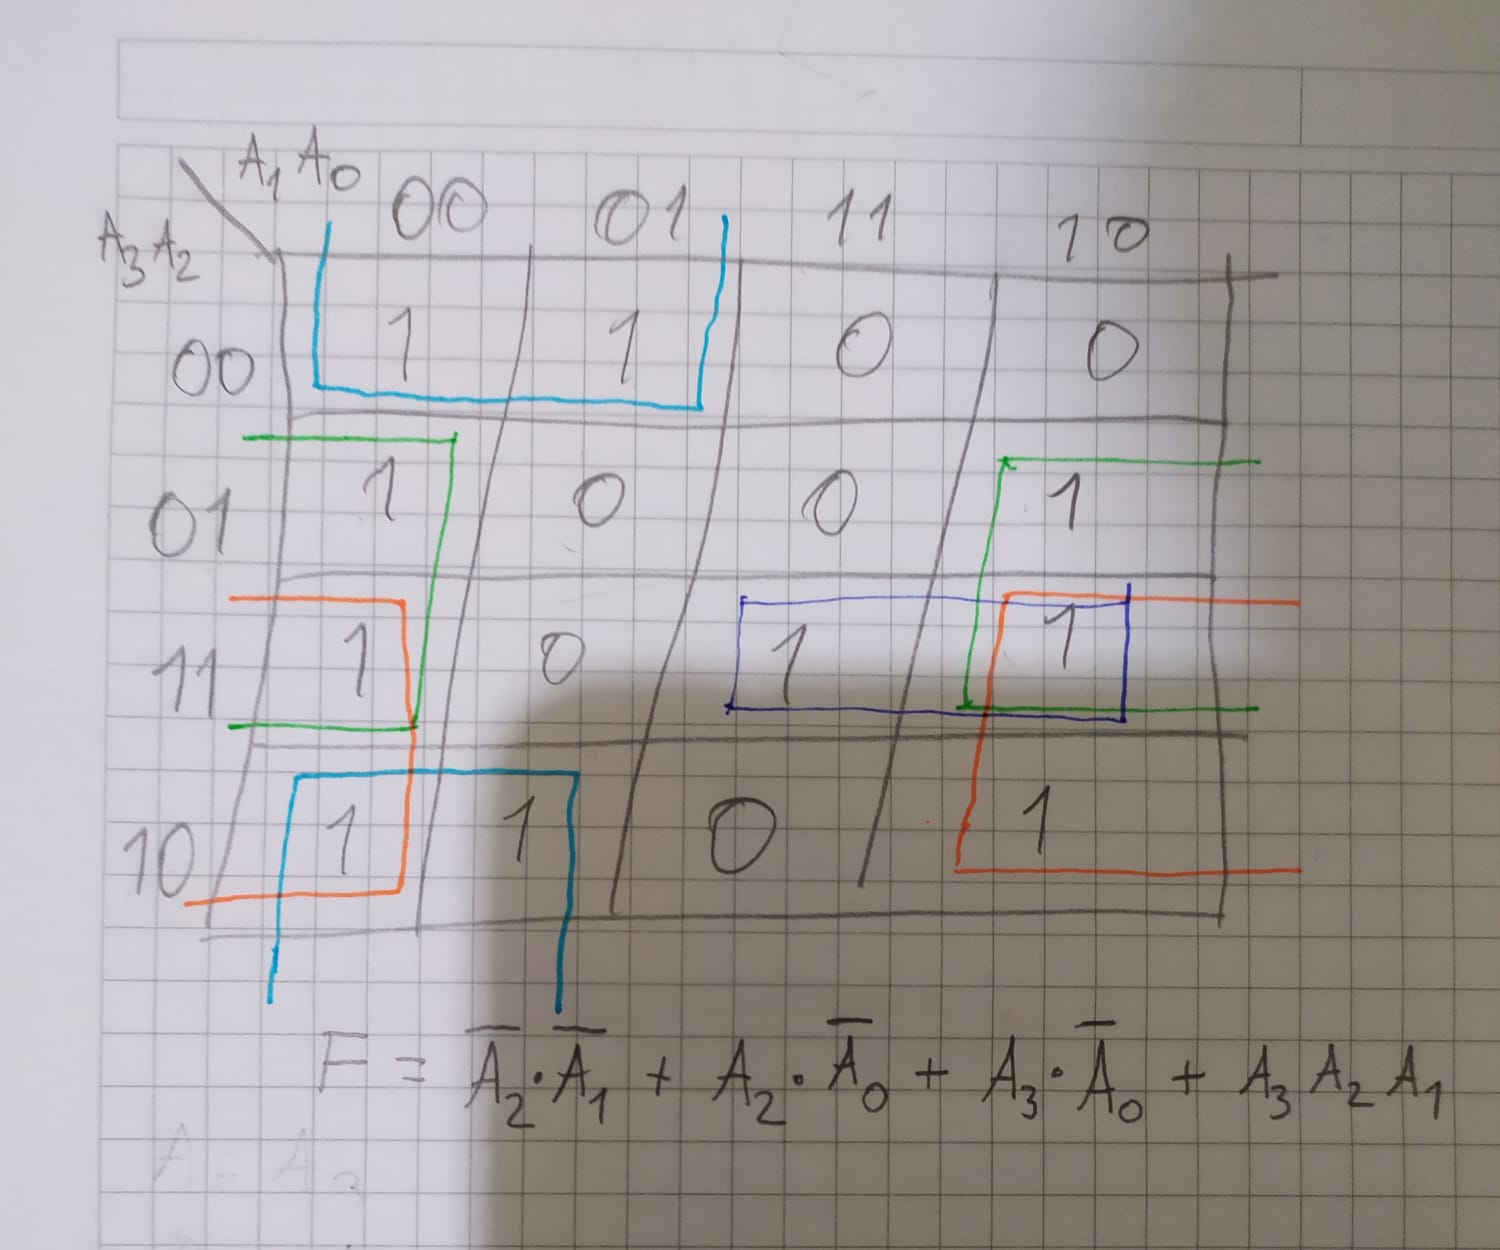 A₁ A₀ 00 01 11 10
A₃ A₂
00 1 1 0 0
01 1 0 0 1
11 1 0 1 1
10 1 1 0 1
F = A̅₂·A̅₁ + A₂·A̅₀ + A₃·A̅₀ + A₃ A₂ A₁